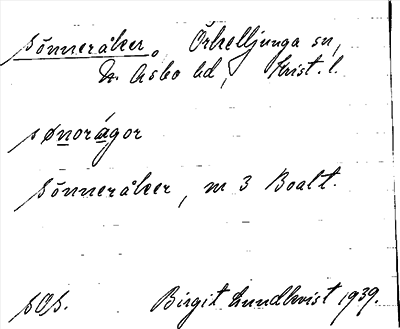 Sönneråker. Örkelljunga sn,
N. Åsbo hd, Krist. l.
sønorágor
Sönneråker, m 3 Boalt.
sOs. Birgit Lundkvist 1939.